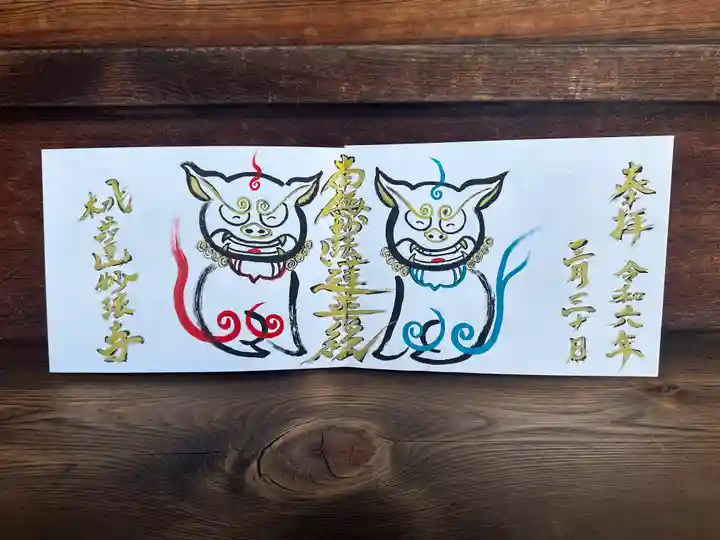 奉拝
令和六年
二月二十日
南無妙法蓮華経
山妙法寺